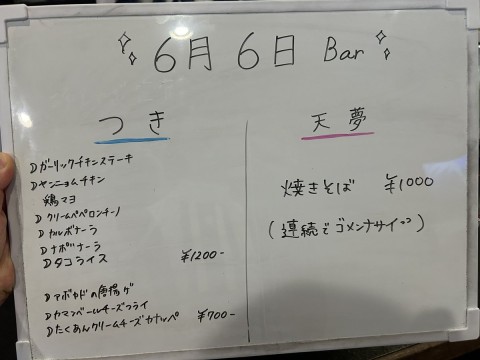 6月6日 Bar
つき
Dガーリックチキンステーキ
Dヤンニョムチキン
鶏マヨ
Dクリームペペロンチーノ
Dカルボナーラ
Dナポリナーラ
Dタコライス ¥1200-
Dアボカドの唐揚げ
Dカマンベールチーズフライ
Dたくあんクリームチーズカナッペ ¥700-
天夢
焼きそば ¥1000
(連続でゴメンナサイ)